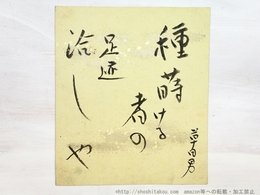 種蒔ける
者の
足迹
洽しや
草田男
amazon等への転載・加工禁止